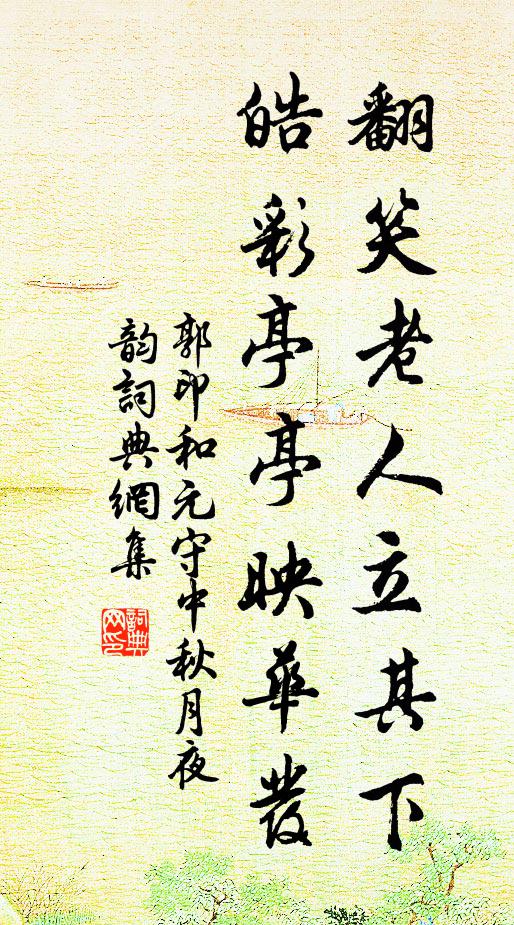 翻笑老人立其下
皓彩亭亭映華發
郭印和元守中秋月夜
韵詞典網集
詞典
网印